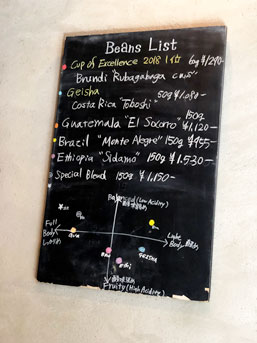 Beans List
Cup of Excellence 2018 1位 60g ¥1,290-
Brundi "Rubagabaga CWS"
Geisha 50g ¥1,090-
Costa Rica "Toboshi"
150g
Guatemala "El Socorro" ¥1,120-
Brazil "Monte Alegro" 150g ¥955-
Ethiopia "Sidamo" 150g ¥1,530-
Special Blend 150g ¥1,150-
(Low Acidity)
Full
Body
Light
Body
Fruity (High Acidity)